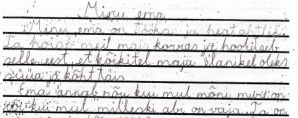 Minu ema
Minu ema on tore ja heatahtlik.
Ta hoiab meil maja korras ja hoolitseb
selle eest, et kõikidel maja elanikel oleks
süüa ja kõht täis.
Ema annab nõu kui mul mõni mure on
või kui meil milleski abi on vaja. Ta on